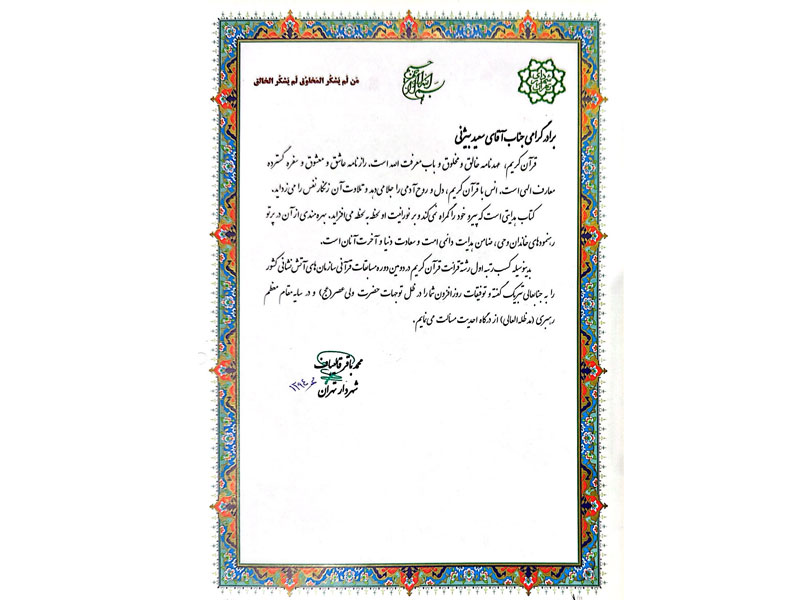 مَن لَم یَشکُر المَخلوق لَم یَشکُر الخالق
بسم الله الرحمن الرحیم
شهرداری تهران
برادر گرامی جناب آقای سعید بیژنی
قرآن کریم، عهدنامه خالق و مخلوق و باب معرفت الله است. رازنامه عاشق و معشوق و سفره گسترده
معارف الهی است. انس با قرآن کریم، دل و روح آدمی را جلا می‌دهد و تلاوت آن زنگار نفس را می‌زداید.
کتاب هدایتی است که پیرو خود را گمراه نمی‌کند و بر نورانیت او لحظه به لحظه می‌افزاید. بهره‌مندی از آن در پرتو
رهنمودهای خاندان وحی، ضامن هدایت دائمی امت و سعادت دنیا و آخرت آنان است.
بدینوسیله کسب رتبه اول رشته قرائت قرآن کریم در دومین دوره مسابقات قرآنی سازمان‌های آتش نشانی کشور
را به جنابعالی تبریک گفته و توفیقات روز افزون شما را در ظل توجهات حضرت ولی عصر (عج) و در سایه مقام معظم
رهبری (مدظله العالی) از درگاه احدیت مسالت می‌نمایم.
محمد باقر قالیباف
شهردار تهران